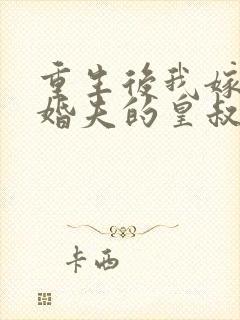 重生後我嫁
婚夫的皇叔
卡西